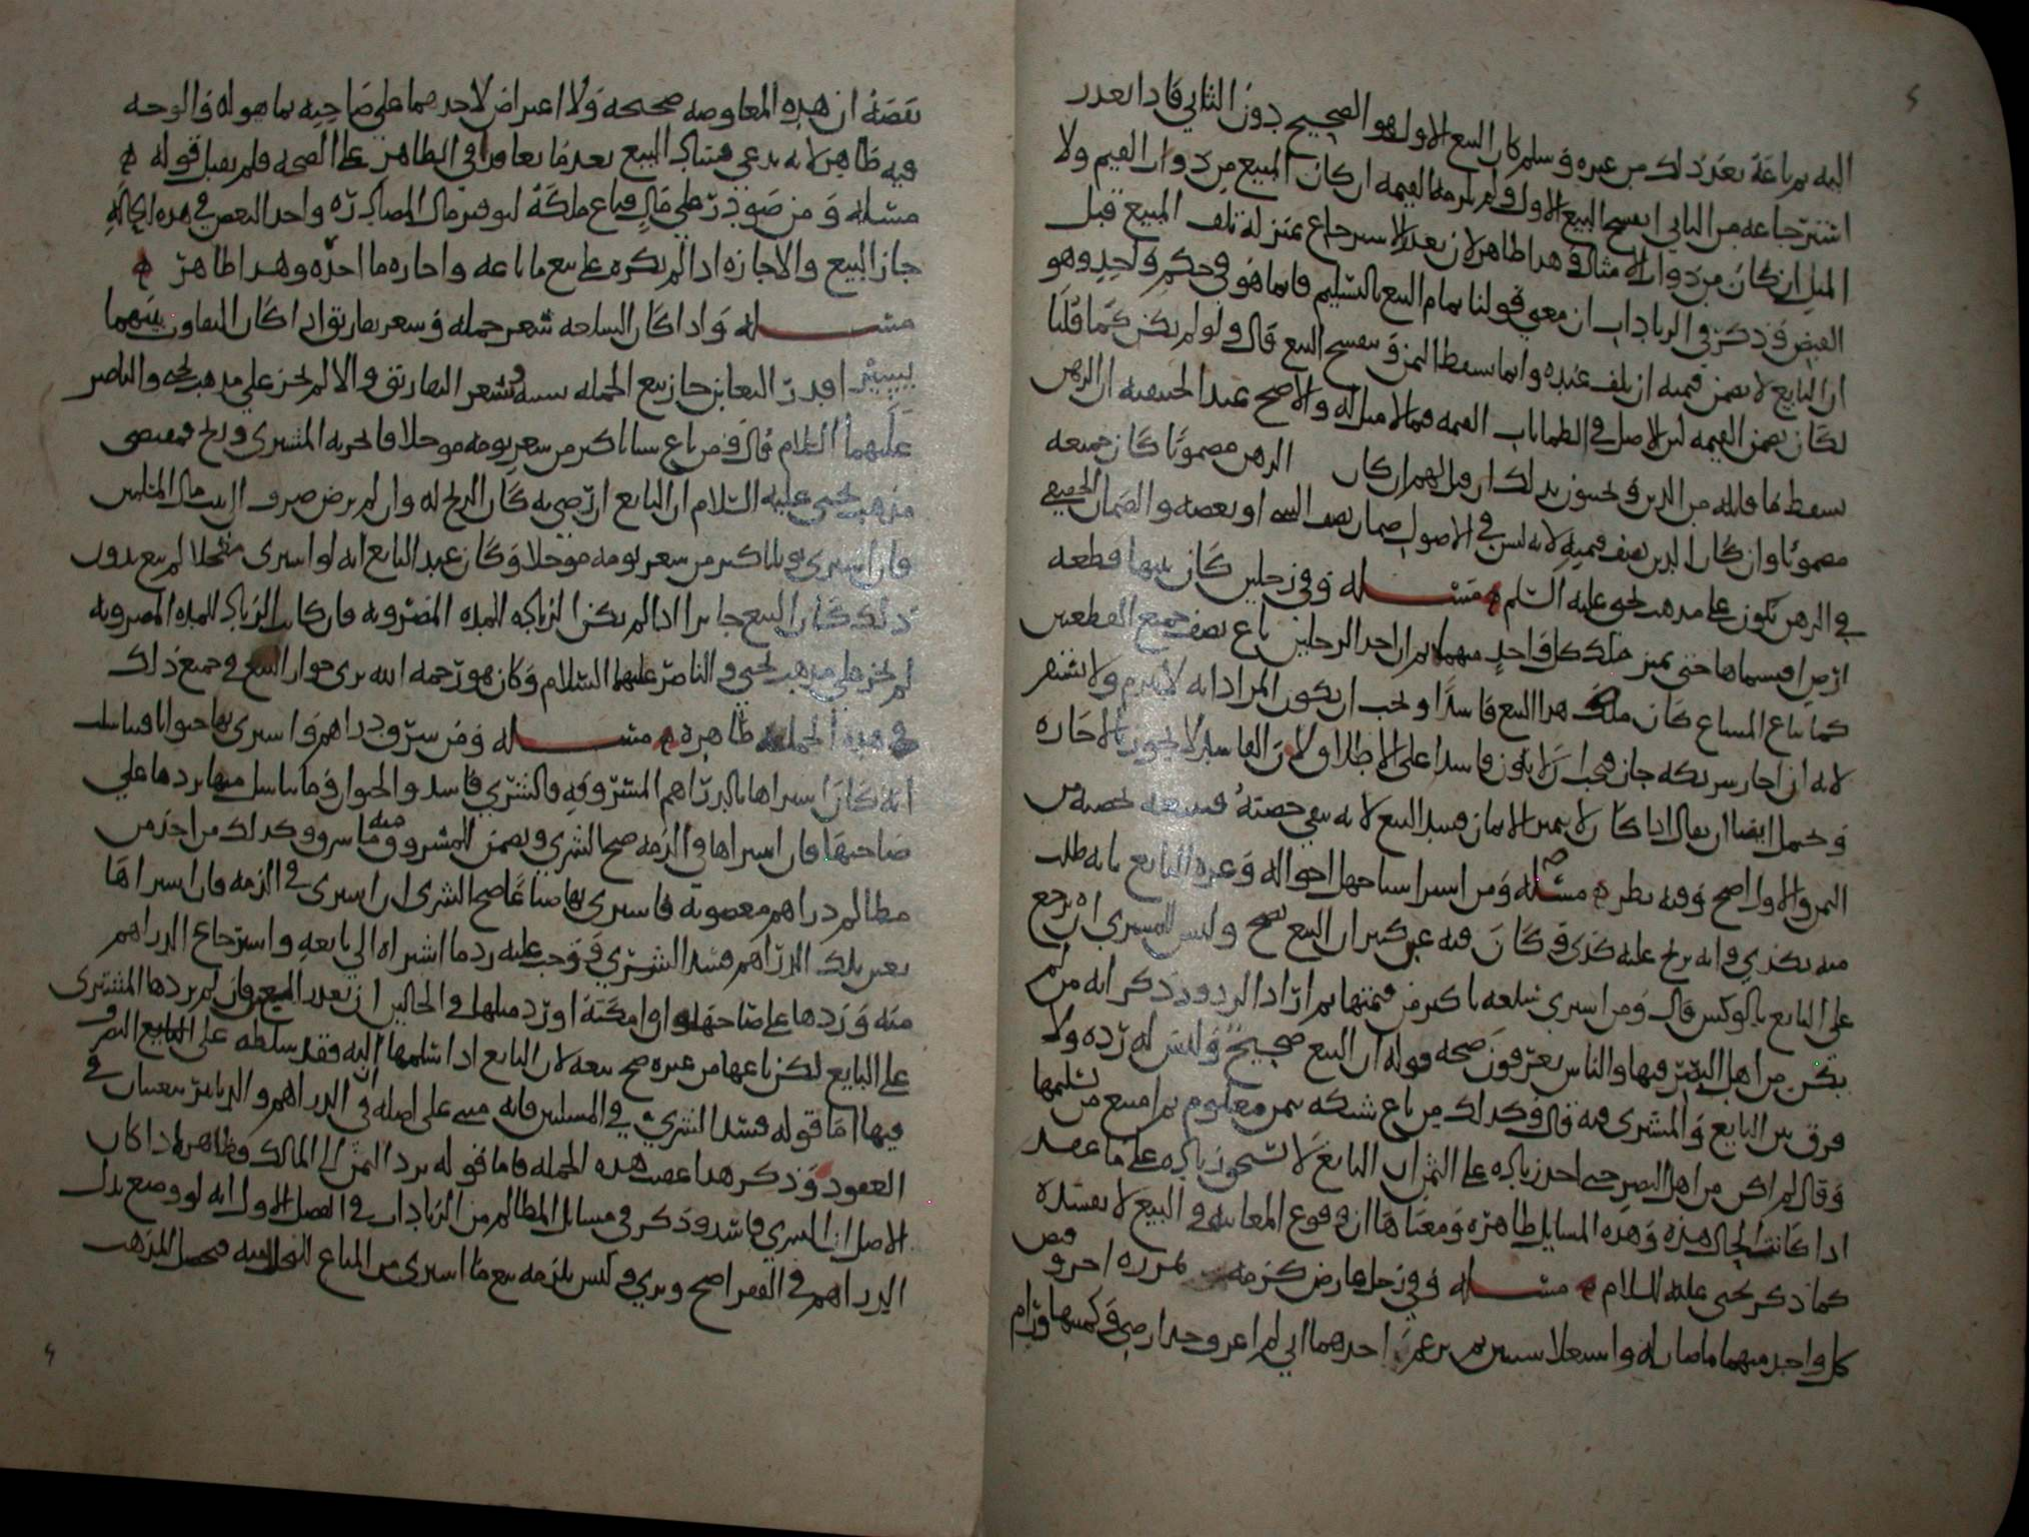 اليه ثم باعه بعد ذلك من غيره وسلم كان البيع الاول هو الصحيح دون الثاني فاذا تعذر
استرجاعه من الثاني انفسخ البيع الاول ولم يلزمه القيمه ان كان المبيع من ذوات القيم ولا
المثل ان كان من ذوات الامثال وهذا ظاهر لان تعذر الاسترجاع بمنزلة تلف المبيع قبل
القبض وذكر في الزيادات ان معنى قولنا تمام البيع بالتسليم فانما هو في حكم واحد وهو
ان البايع لا يضمن قيمته ان تلف عنده وانما يسقط الثمن وينفسخ البيع قال ولو لم يكن كما قلنا
لكان يضمن القيمه لان الاصل في الضمانات القيمه فيما لا مثل له والاصح عند الحنفيه ان الرهن
يسقط ما قابله من الدين الرهن مضمونا كان جميعه
مضمونا وان كان الدين نصف قيمته لانه ليس في الاصول ضمان نصف الشي او بعضه والضمان الحقيقي
في الرهن يكون على مذهب يحيى عليه السلم مسئله وفي رجلين كان بينهما قطعه
ارض اقتسماها حتى تميز ملك كل واحد منهما ثم ان احد الرجلين باع نصف جميع القطعتين
كما يباع المشاع كان هذا البيع فاسدا ويجب ان يكون المراد انه لا يلزم ولا يستقر
لانه ان اجاز شريكه جاز فيجب ان لا يكون فاسدا على الاطلاق لان الفاسد لا يجوز بالاجازه
ويحتمل ايضا ان يقال اذا كان لا يتميز الاثمان فسد البيع لانه بيع حصته
الثمن والاول اصح وفيه نظر مسئله ومن اشترا شيا جهل احواله وغره البايع بانه طلب
منه بكذى وانه ربح عليه كذى وكان فيه غبن كبير ان البيع صحيح وليس للمشتري ان يرجع
على البايع بالوكس قال ومن اشترى سلعه باكثر من قيمتها ثم اراد الرد وذكر انه من لم
يكن من اهل البصر فيها والناس يعرفون صحه قوله ان البيع صحيح وليس له رده ولا
فرق بين البايع والمشتري فيه قال وكذلك من باع شبكه بثمن معلوم ثم امتنع من تسليمها
وقال لم اكن من اهل البصر حتى اخذ زياده على الثمن ان البايع لا يستحق زياده على ما عقد
اذا كانت الحال هذه وهذه المسايل ظاهره ومعناها ان وقوع المغابنه في البيع لا يفسده
كما ذكر يحيى عليه السلام مسئله وفي رجل عارض كرمه وقبض
كل واحد منهما ما صار له واستغلا سنين ثم زعم احدهما اني لم اعرف حد ارضي وكميتها ورام
نقضه ان هذه المعاوضه صحيحه ولا اعتراض لاحدهما على صاحبه بما هو له والوجه
فيه ظاهر لانه يدعي فساد البيع بعد ما تعاقدا في الظاهر على الصحه فلم يقبل قوله
مسئله ومن صودر على مال فباع ملكه ليوفر مال المصادره واخذ البعض في هذه الحاله
جاز البيع والاجازه اذا لم يكره على بيع ما باعه واجاره ما اجره وهذا ظاهر
مسئله واذا كان لسلعه سعر جمله وسعر تفاريق اذا كان التفاوت بينهما
يسير اقدر التغابن جاز بيع الجمله بسعر التفاريق والا لم يجز على مذهب يحيى والناصر
عليهما السلام قال ومن باع شيا باكثر من سعر يومه موجلا فاتجر به المشتري وربح فمقتضى
مذهب يحيى عليه السلام ان البايع ان رضي به كان الربح له وان لم يرض صرف الى بيت مال المسلمين
فان اشترى ثوبا باكثر من سعر يومه موجلا وكان عند البايع انه لو اشترى معجلا لم يبع بدون
ذلك كان البيع جايرا اذا لم يكن الزياده للمده المضروبه فان كانت الزياده للمده المضروبه
لم يجز على مذهب يحيى والناصر عليهما السلام وكان هو رحمه الله يرى جواز البيع في جميع ذلك
في هذه الجمله ظاهره مسئله ومن سرق دراهم واشترى بها حيوانا فتناسلت
انه كان اشتراها بالدراهم المسروقه فالشرى فاسد والحيوان وما تناسل منها يردها على
صاحبها فان اشتراها في الذمه صح الشرى ويضمن للمسروق منه ما سرق وكذلك من اخذ من
مظالم دراهم مغصوبه فاشترى بها ضياعا صح الشرى ان اشترى في الذمه فان اشتراها
بعين تلك الدراهم فسد الشرى ووجب عليه رد ما اشتراه الى بايعه واسترجاع الدراهم
منه وردها على صاحبها ان امكنه او رد مثلها في الحالين ان تعذر المبيع فان لم يردها المشترى
على البايع لكن باعها من غيره صح بيعه لان البايع اذا سلمها اليه فقد سلطه على التصرف
فيها اما قوله فسد الشرى في المسلتين فانه مبني على اصله في ان الدراهم والدنانير يتعينان في
العقود وذكر هذا عقيب هذه الجمله فاما قوله يرد الثمن الى المالك فظاهر اذا كان
الاصل ان الشرى فاسد وذكر في مسايل المظالم من الزيادات في الفصل الاول انه لو وضع بدل
الدراهم في الفقرا صح وبرى وليس يلزمه بيع ما اشترى من المتاع فحصل المذهب